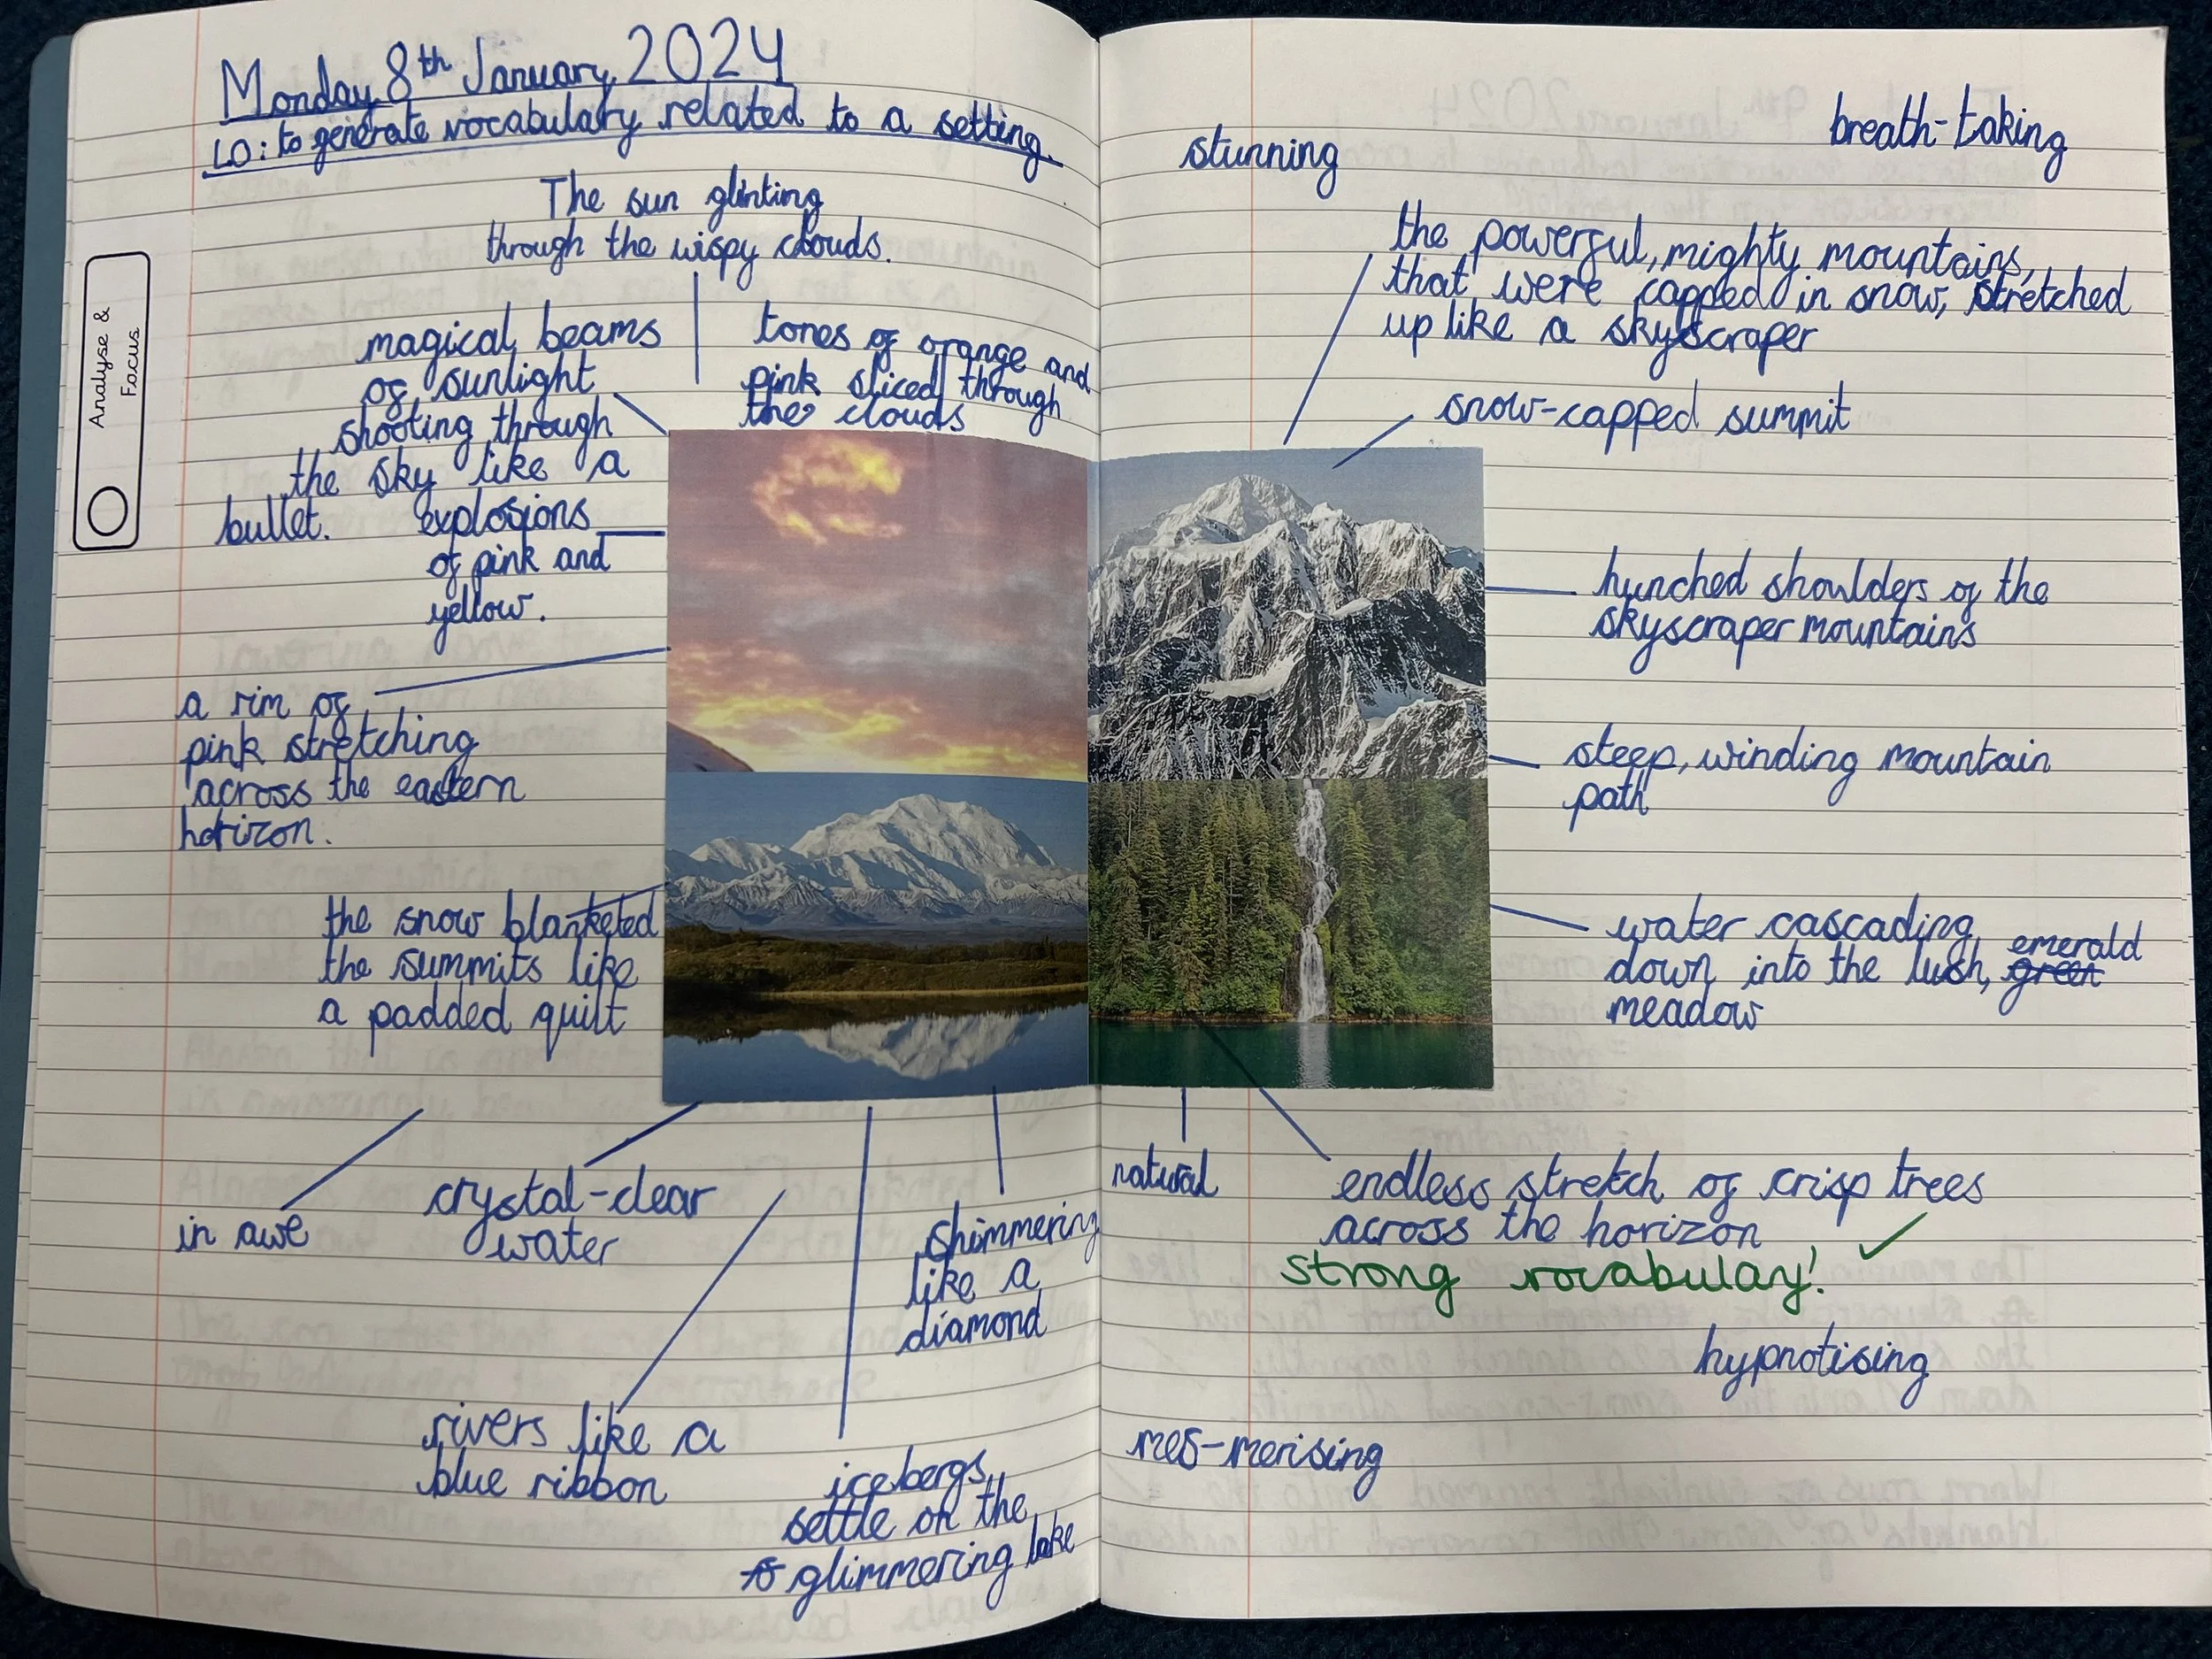 Monday 8th January 2024
LO: to generate vocabulary related to a setting.
Analyse &
Focus
The sun glinting
through the wispy clouds.
magical beams
of sunlight
shooting through
the sky like a
bullet.
tones of orange and
pink sliced through
the clouds
explosions
of pink and
yellow.
a rim of
pink stretching
across the eastern
horizon.
the snow blanketed
the summits like
a padded quilt
in awe
crystal-clear
water
shimmering
like a
diamond
rivers like a
blue ribbon
icebergs
settle on the
glimmering lake
stunning
breath-taking
the powerful, mighty mountains,
that were capped in snow, stretched
up like a skyscraper
snow-capped summit
hunched shoulders of the
skyscraper mountains
steep, winding mountain
path
water cascading
down into the lush, green emerald
meadow
natural
endless stretch of crisp trees
across the horizon
strong vocabulary! ✓
hypnotising
mes-merising